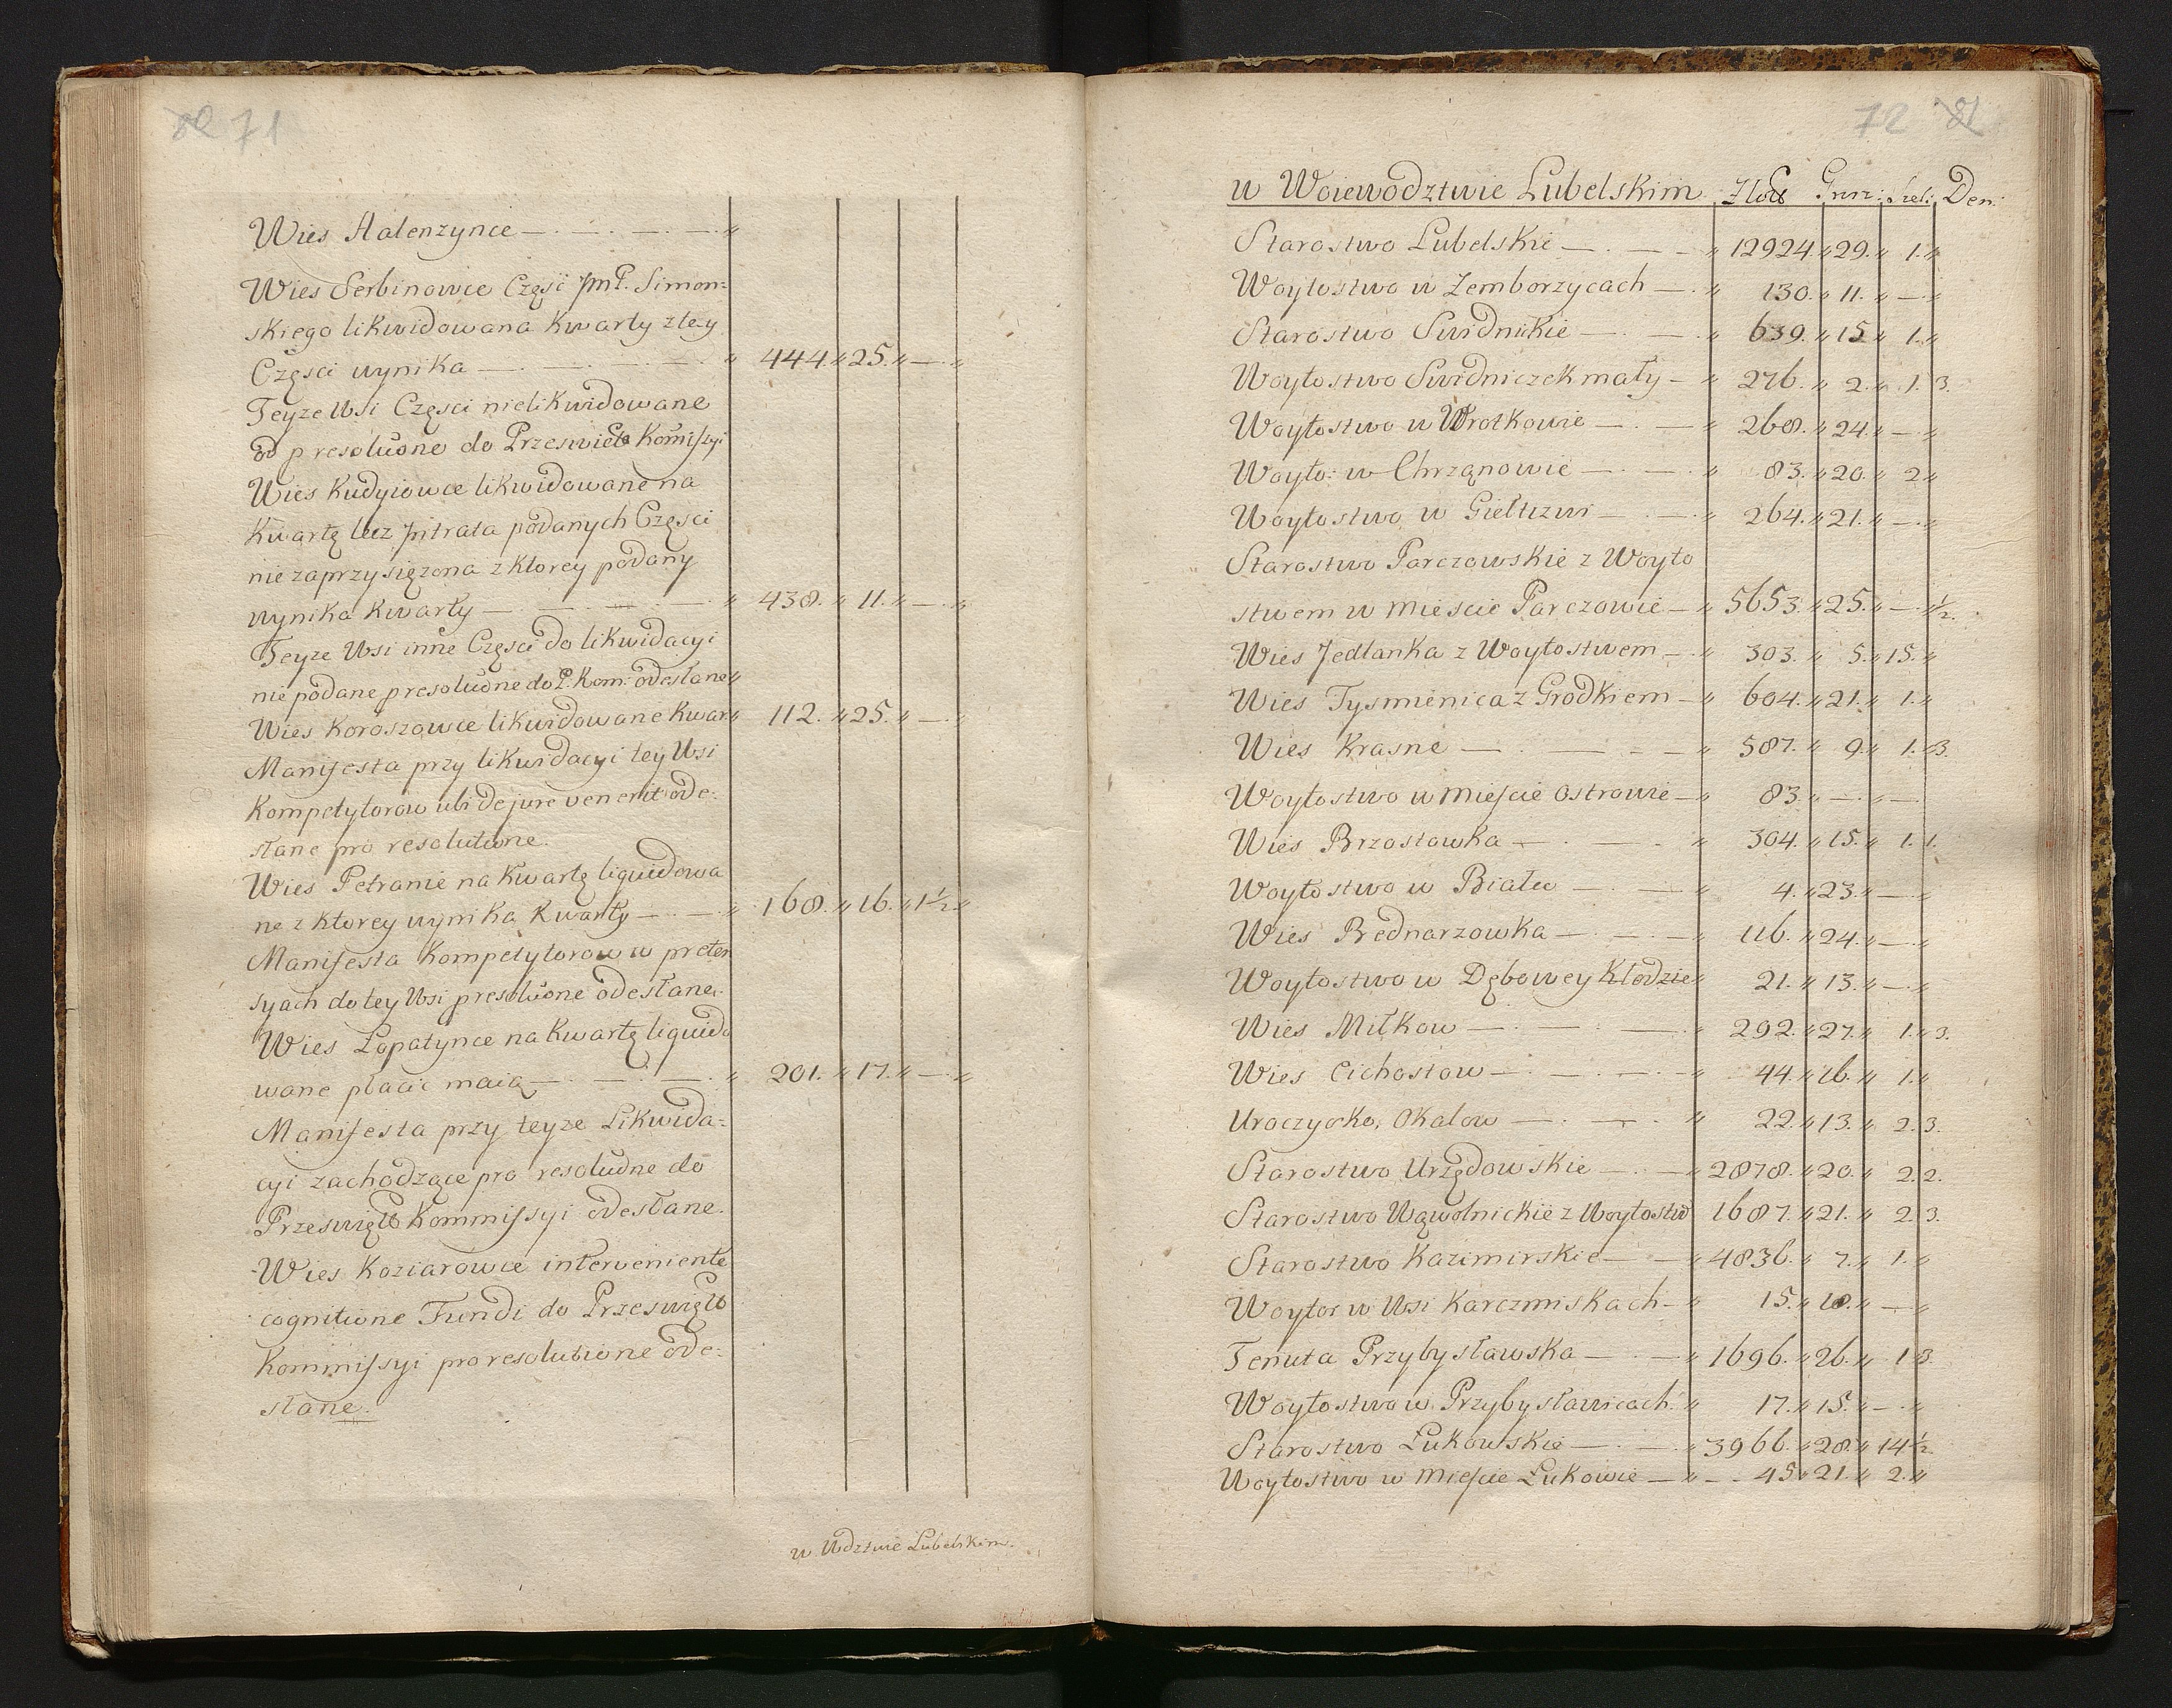 71
Wies Halenzynce — . — . — . — . „
Wies Serbinowce Częsć JmP. Simon=
skiego likwidowana Kwarty z tey
Częsci wynika — . — . — „ 444. „ 25. „ — . „
Teyze Wsi Częsci nielikwidowane
ad p resoluōne do Przeswięte Komissyi
Wies Kudyiowce likwidowane na
Kwartę lecz Jntrata podanych Częsci
nie zaprzysięzona z ktorey podany
wynika Kwarty — . — . — „ 438. „ 11. „ — . „
Teyze Wsi inne Częsci do likwidacyi
nie podane p resoluōne do P. Kom: odesłane „
Wies Koroszowce likwidowane Kwar. „ 112. „ 25. „ — . „
Manifesta przy likwidacyi tey Wsi
Kompetytorow ubi de jure venerit ode=
słane pro resolutione.
Wies Petranie na Kwartę liquidowa
ne z ktorey wynika Kwarty — . — „ 168. „ 16. „ 1½ „
Manifesta Kompetytorow w preten
syach do tey Wsi p resoluōne odesłane.
Wies Łopatynce na Kwartę liquido
wane płacic maią — . — . — . „ 201. „ 17. „ — . „
Manifesta przy teyze Likwida=
cyi zachodzące pro resoluōne do
Przeswięto Kommissyi odesłane.
Wies Koziarowce interveniente
cognitione Fundi do Przeswięto
Kommissyi pro resolutione ode=
słane.
w Wdztwie Lubelskim.
72 81
w Woiewodztwie Lubelskim Złoł Grsz: Szel: Den:
Starostwo Lubelskie — . — „ 12924. „ 29. „ 1. „
Woytostwo w Zemborzycach — . „ 130. „ 11. „ — . „
Starostwo Swidnickie — . — . „ 639. „ 15 „ 1. „
Woytostwo Swidniczek mały — „ 276. „ 2. „ 1. 3.
Woytostwo w Wrotkowie — . — „ 268. „ 24. „ — . „
Woyto: w Chrząnowie — . — . „ 83. „ 20. „ 2 „
Woytostwo w Giełczwi — . — . „ 264. „ 21. „ — . „
Starostwo Parczowskie z Woyto
stwem w miescie Parczowie — „ 5653. „ 25. „ — . „ ½.
Wies Jedlanka z Woytostwem — . „ 303. „ 5. „ 15. „
Wies Tysmienica z Grodkiem — „ 604. „ 21. „ 1. „
Wies Krasne — . — – — „ 587. „ 9. „ 1. „ 3.
Woytostwo w Miescie Ostrowie — „ 83. „ — . „ — .
Wies Brzostowka — . — . „ 304. „ 15. „ 1. 1.
Woytostwo w Białce — . — „ 4. „ 23. „ — . „
Wies Bednarzowka — . — . — „ 116. „ 24. „ — . „
Woytostwo w Dębowey Kłodzie „ 21. „ 13. „ — . „
Wies Miłkow — . — . — . „ 292. „ 27. „ 1. „ 3.
Wies Cichostow — . — . — . „ 44. „ 16. „ 1. „
Uroczysko, Okalow — . — . „ 22. „ 13. „ 2. 3.
Starostwo Urzędowskie — . — „ 2878. „ 20. „ 2. 2.
Starostwo Wąwolnickie z Woytostw 1687. „ 21. „ 2. 3.
Starostwo Kazimirskie — . — „ 4836. „ 7. „ 1. „
Woytos w Wsi Karczmiskach — „ 15. „ 18. „ — . „
Tenuta Przybysławska — . — „ 1696. „ 26. „ 1 3.
Woytostwo w Przybysławicach. „ 17. „ 15. „ — . „
Starostwo Łukowskie — . — . „ 3966. „ 28. „ 1 4½
Woytostwo w Miescie Łukowie — „ – – 45 „ 21. „ 2. „